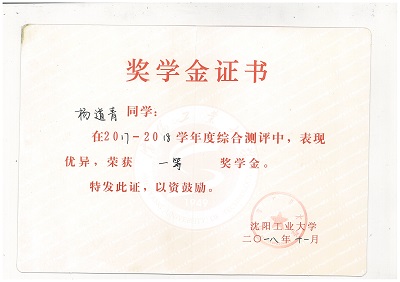 奖学金证书
杨道青 同学：
在2017-2018学年度综合测评中，表现
优异，荣获 一等 奖学金。
特发此证，以资鼓励。
沈阳工业大学
二〇一八年十一月